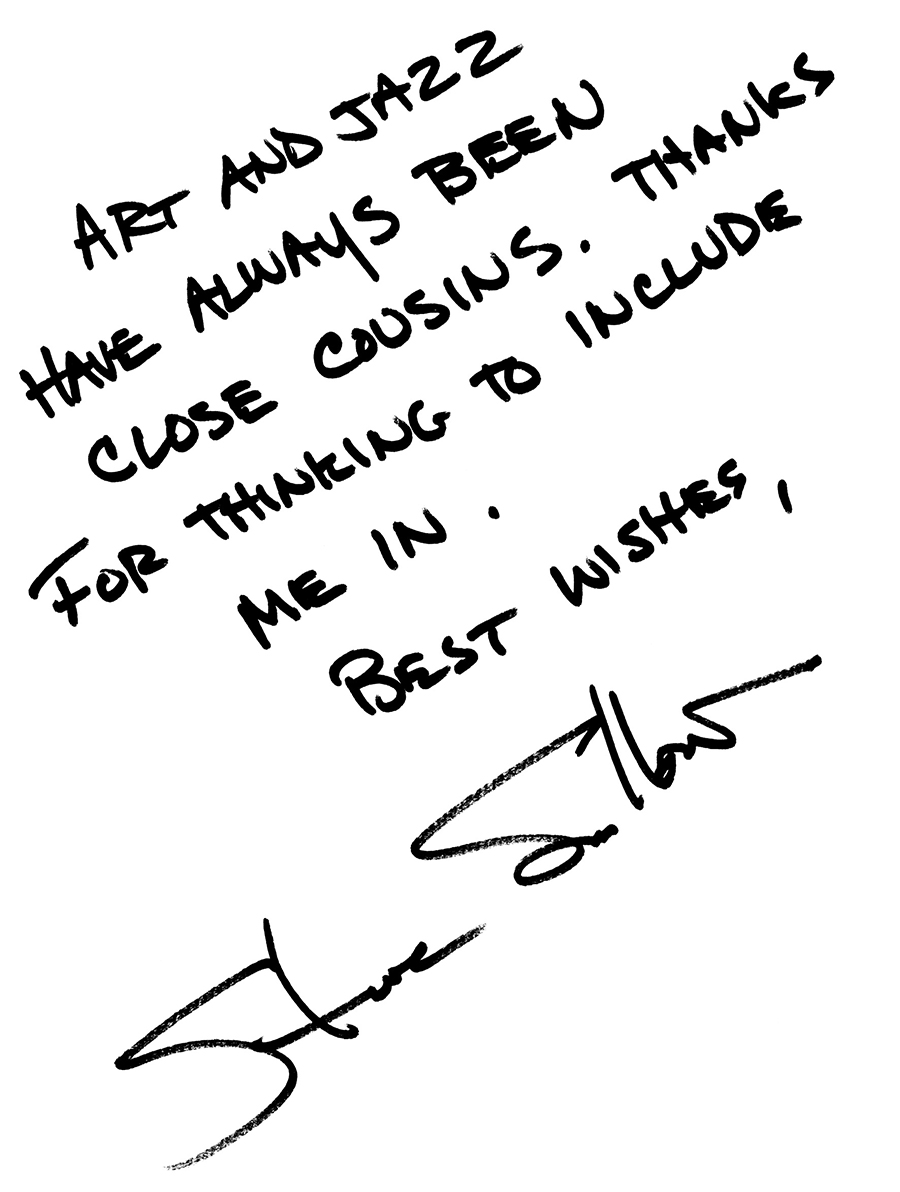 ART AND JAZZ
HAVE ALWAYS BEEN
CLOSE COUSINS. THANKS
FOR THINKING TO INCLUDE
ME IN.
BEST WISHES,
Steve